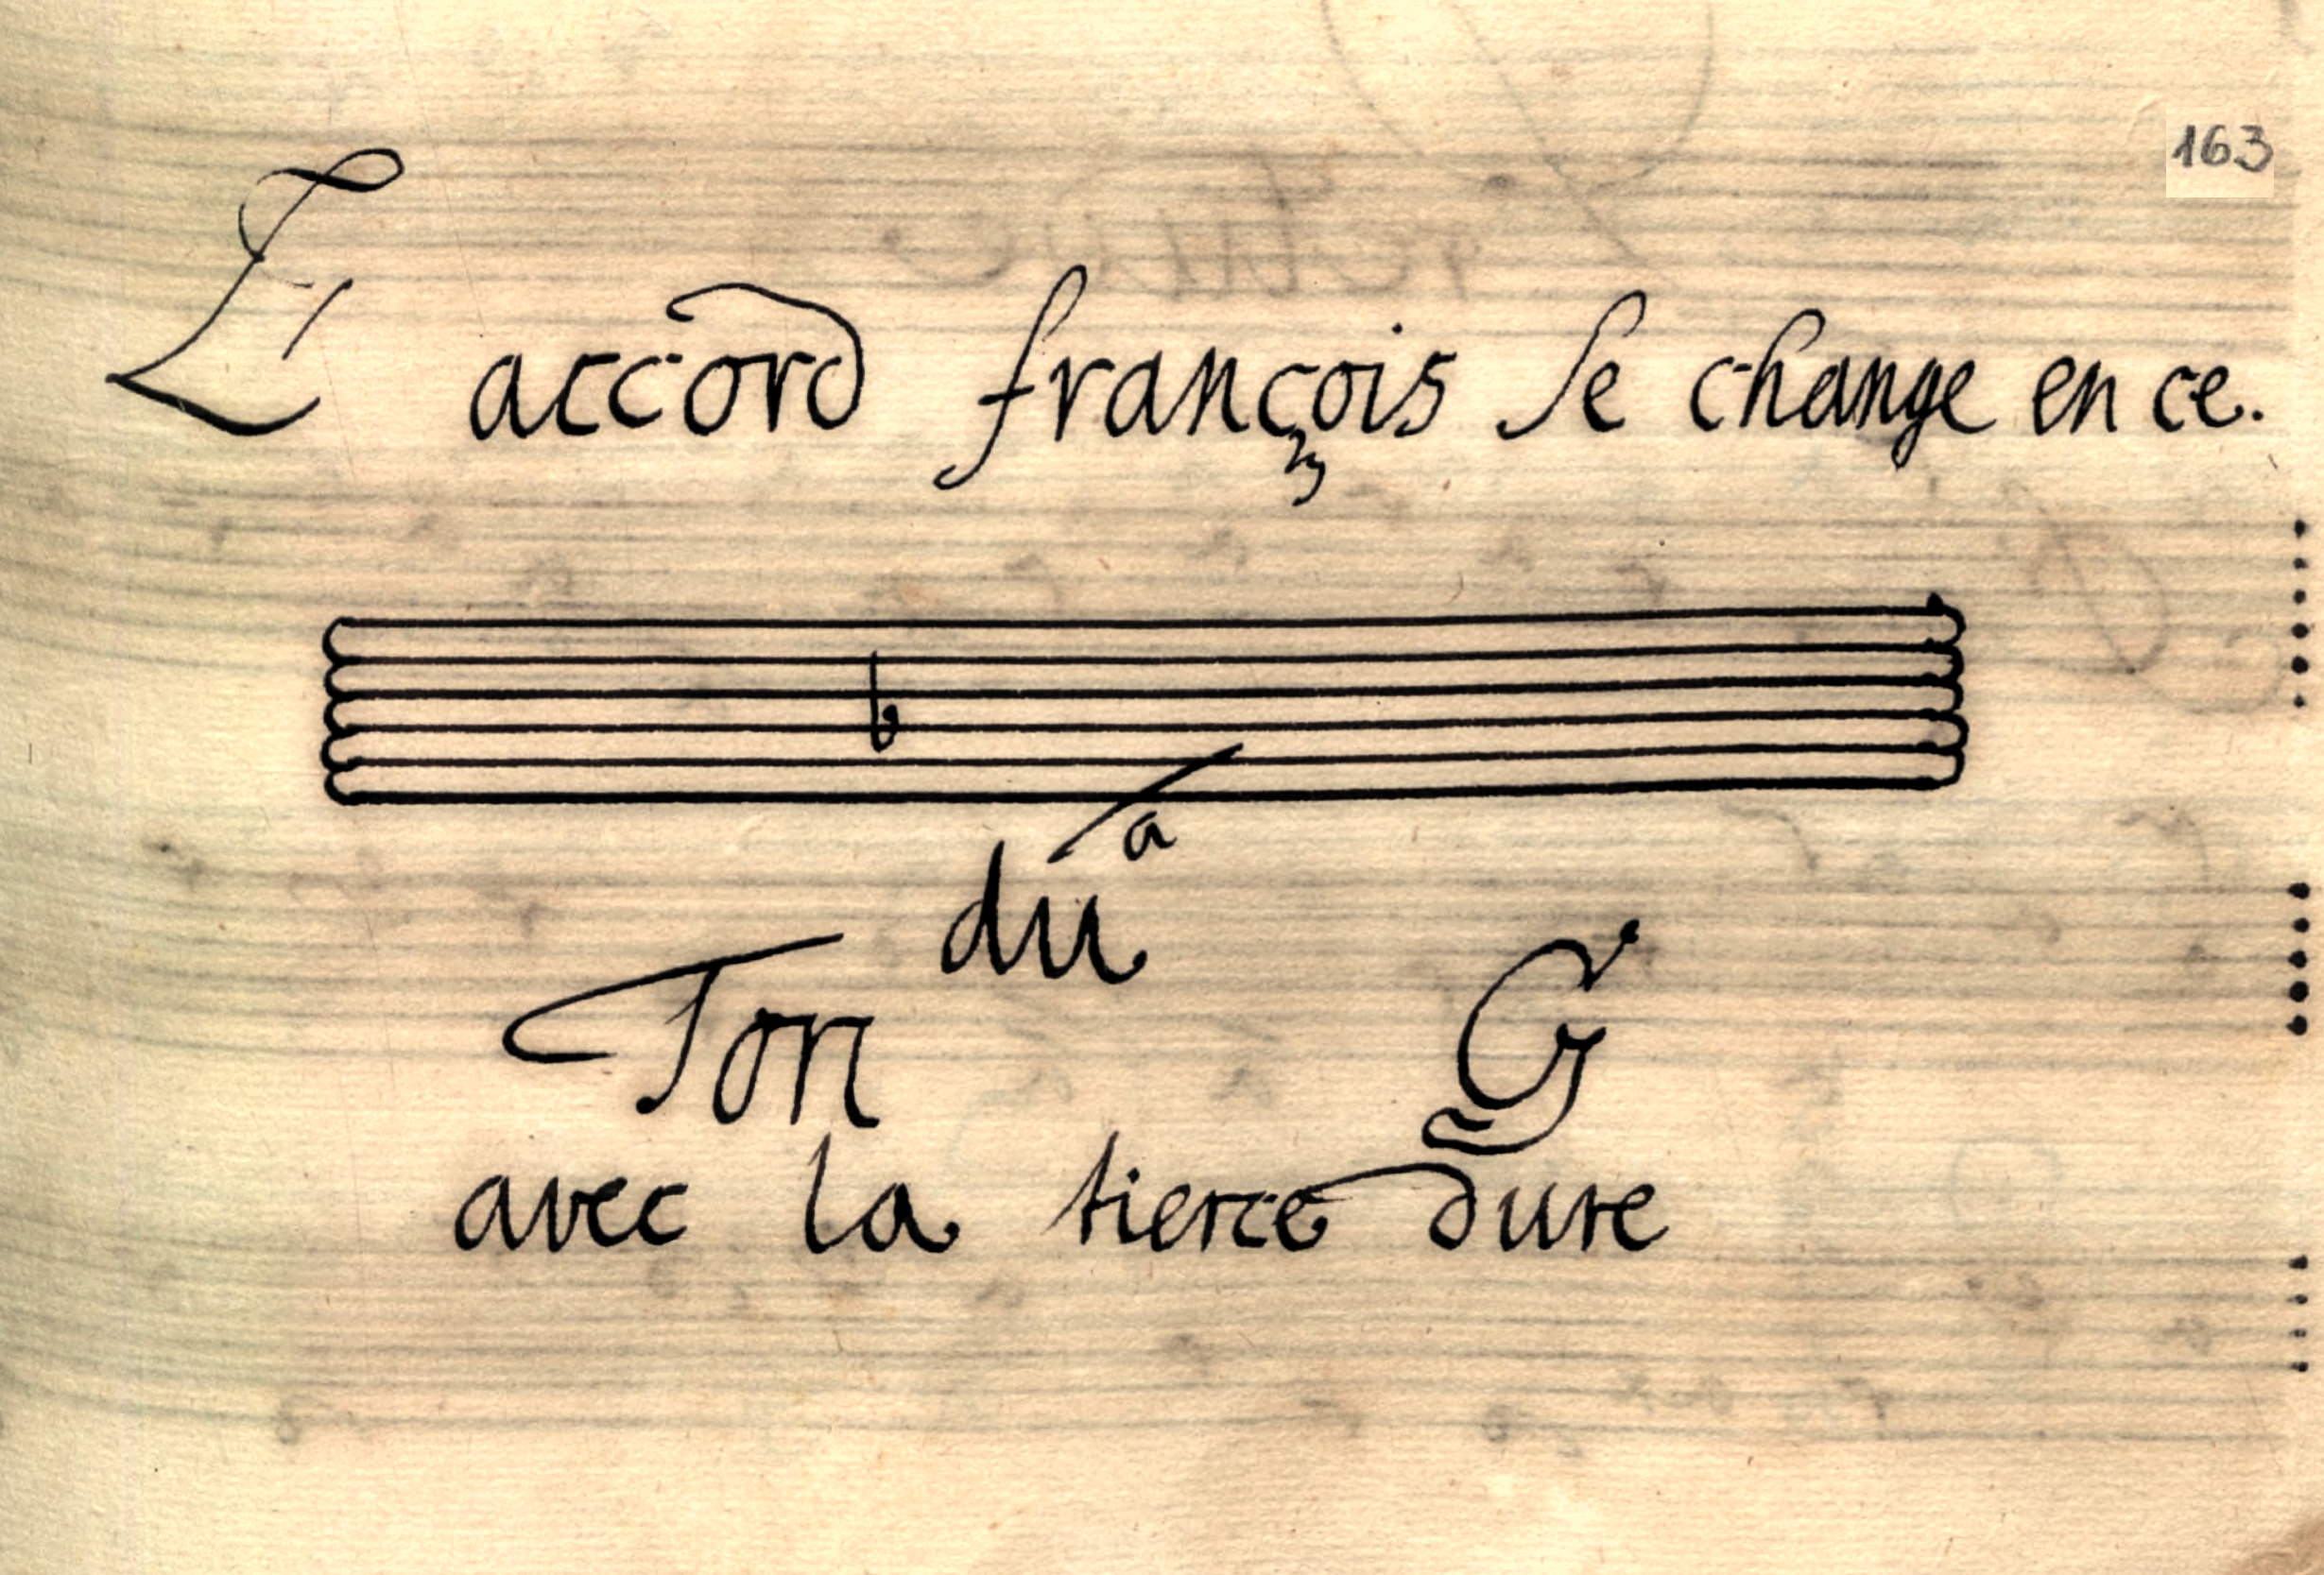 163
L'accord françois se change en ce.
b
a
du
Ton G
avec la tierce dure